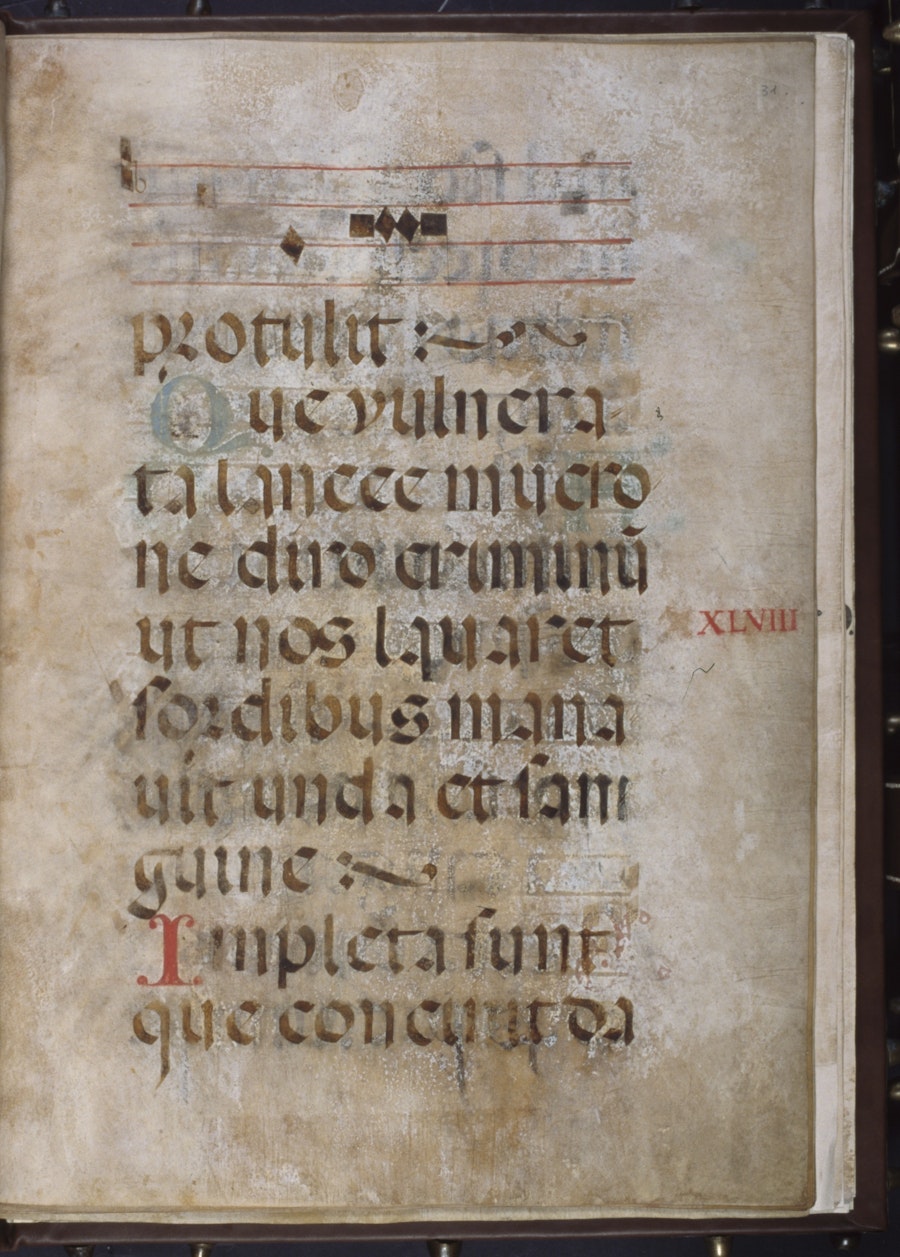 31.
protulit :~
Que vulnera-
ta lancee mucro
ne diro criminū
ut nos lauaret
XLVIII
sordibus mana
uit unda et san
guine :~
Impleta sunt
que concinit da